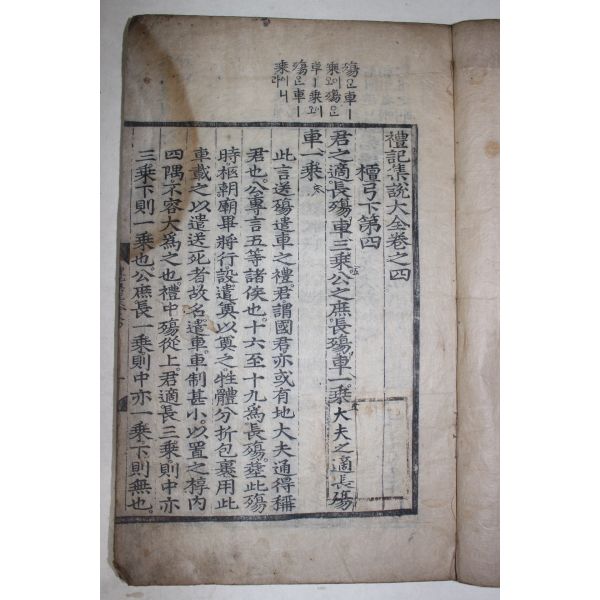 殤오車ㅣ
乘이殤은
車ㅣ乘오
殤은車ㅣ
乘이니
라
禮記集說大全卷之四
檀弓下第四
君之適長殤車三乘公之庶長殤車一乘大夫之適長殤
車一乘
此言送殤遣車之禮君謂國君亦或有地大夫通得稱
君也公專言五等諸侯也十六至十九爲長殤葬此殤
時柩朝廟畢將行設遣奠以奠之牲體分折包裹用此
車載之以遣送死者故名遣車車制甚小以置之椁內
四隅不容大爲之也禮中殤從上君適長三乘則中亦
三乘下則一乘也公庶長一乘則中亦一乘下則無也